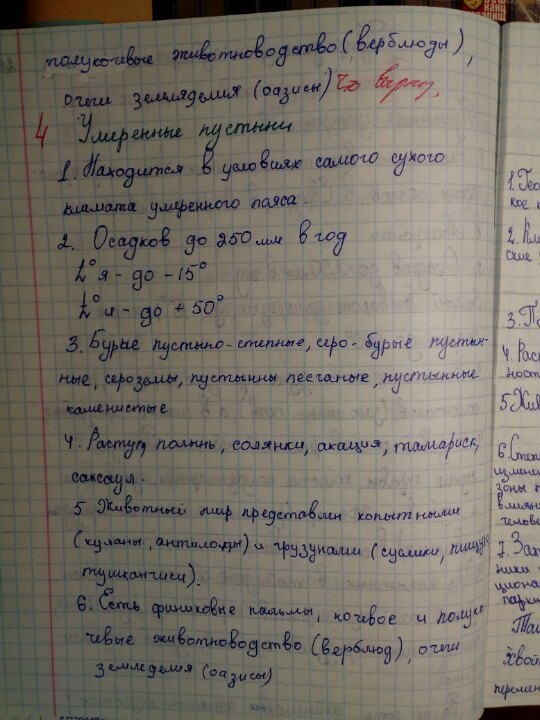 полукочевые животноводство (верблюды),
очаги земледелия (оазисы)
4 Умеренные пустыни
1. Находится в условиях самого сухого
климата умеренного пояса.
2. Осадков до 250 мм в год
t° я - до -15°
t° и - до + 50°
3. Бурые пустыно-степные, серо-бурые пустын-
ные, сероземы, пустынны песчаные, пустынные
каменистые
4. Растут полынь, солянки, акация, тамариск,
саксаул.
5. Животный мир представлен копытными
(куланы, антилопы) и грузунами (суслики, пищухи
тушканчики).
6. Есть финиковые пальмы, кочевое и полуко-
чевые животноводство (верблюд), очаги
земледелия (оазисы)
1. Гео
кое
2. Кли
ские
3. П
4. Раст
ност
5. Жив
6. Степ
измене
зоны
влияни
челове
7. Зап
ники
циона
парки
Тай
хвой
перемен